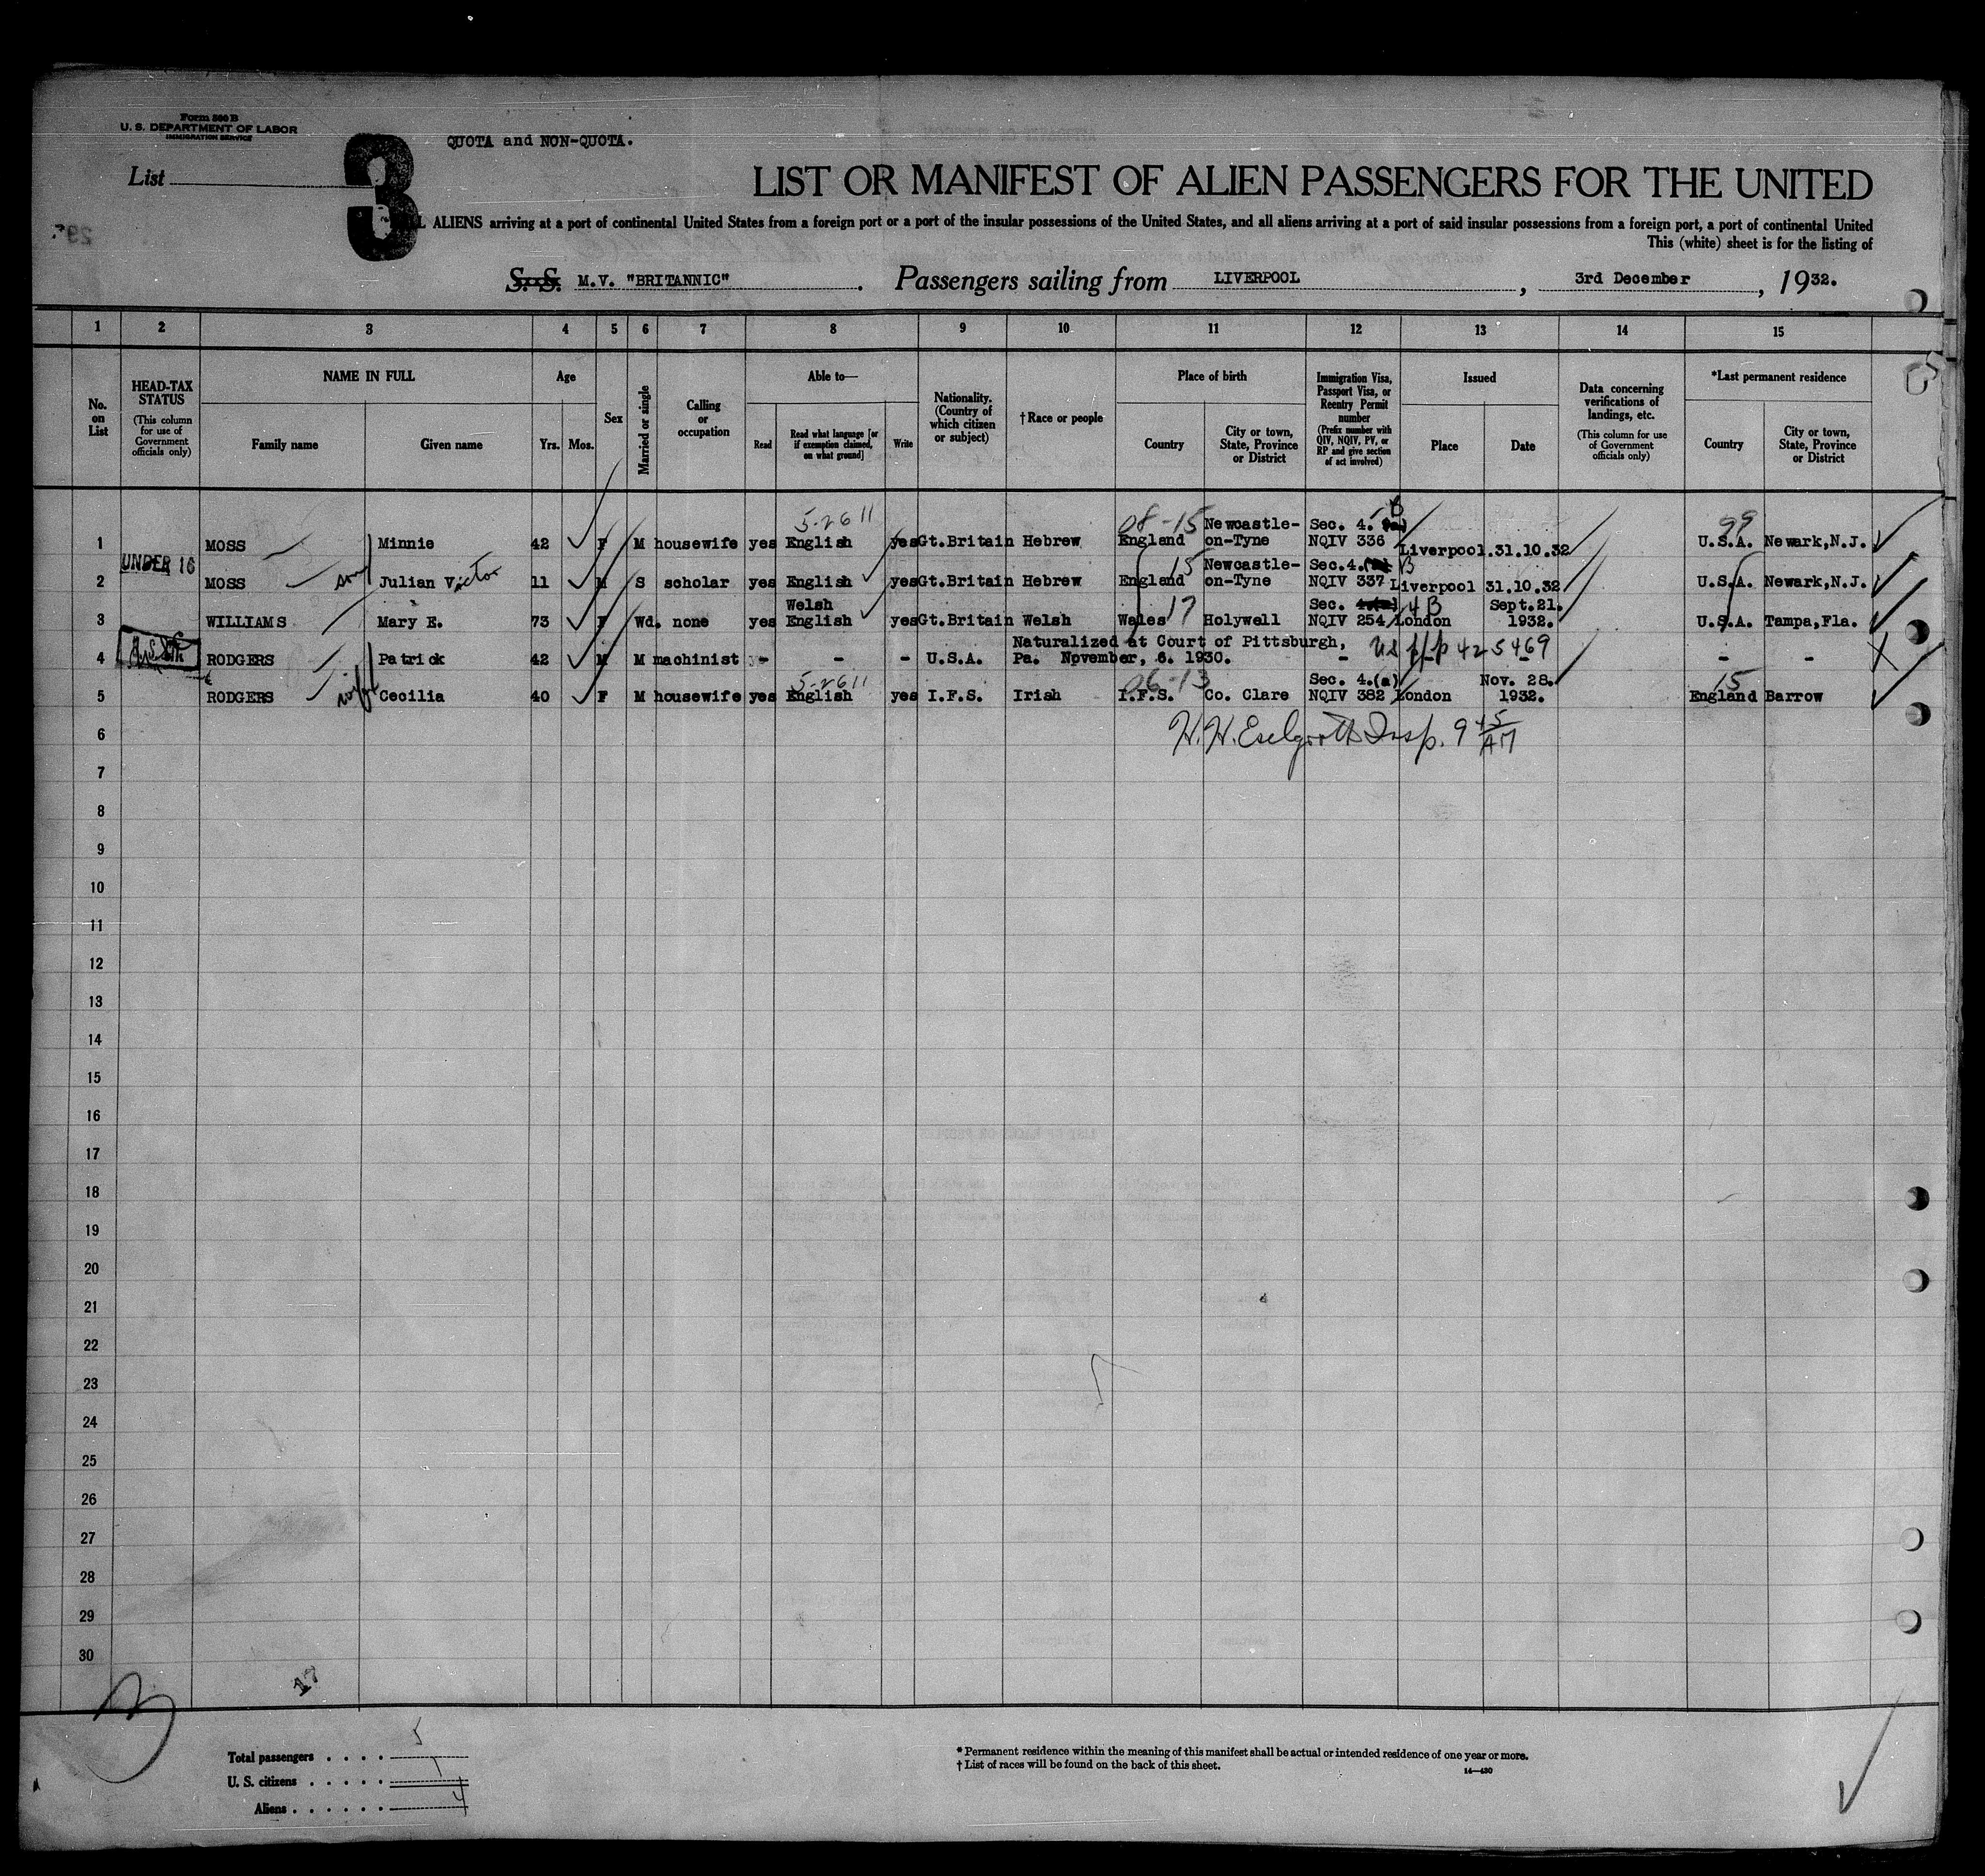 Form 500 B
U. S. DEPARTMENT OF LABOR
IMMIGRATION SERVICE
QUOTA and NON-QUOTA.
List
3
LIST OR MANIFEST OF ALIEN PASSENGERS FOR THE UNITED
L ALIENS arriving at a port of continental United States from a foreign port or a port of the insular possessions of the United States, and all aliens arriving at a port of said insular possessions from a foreign port, a port of continental United
This (white) sheet is for the listing of
S. S. M.V. "BRITANNIC" . Passengers sailing from LIVERPOOL , 3rd December , 1932.
1 2 3 4 5 6 7 8 9 10 11 12 13 14 15
No. on List
HEAD-TAX STATUS
(This column for use of Government officials only)
NAME IN FULL
Family name Given name
Age
Yrs. Mos.
Sex
Married or single
Calling or occupation
Able to—
Read Read what language [or if exemption claimed, on what ground] Write
Nationality. (Country of which citizen or subject)
†Race or people
Place of birth
Country City or town, State, Province or District
Immigration Visa, Passport Visa, or Reentry Permit number
(Prefix number with QIV, NQIV, PV, or RP and give section of act involved)
Issued
Place Date
Data concerning verifications of landings, etc.
(This column for use of Government officials only)
*Last permanent residence
Country City or town, State, Province or District
5-2611 08-15 Newcastle- Sec. 4. B 99
1 MOSS Minnie 42 F M housewife yes English yes Gt.Britain Hebrew England on-Tyne NQIV 336 Liverpool.31.10.32 U.S.A. Newark,N.J.
UNDER 16 15 Newcastle- Sec.4. B
2 MOSS son Julian Victor 11 M S scholar yes English yes Gt.Britain Hebrew England on-Tyne NQIV 337 Liverpool 31.10.32 U.S.A. Newark,N.J.
Welsh 17 Sec. 4 B Sept.21.
3 WILLIAMS Mary E. 73 F Wd. none yes English yes Gt.Britain Welsh Wales Holywell NQIV 254 London 1932. U.S.A. Tampa,Fla.
Naturalized at Court of Pittsburgh, US ppp 425469
4 RODGERS Patrick 42 M M machinist - - - U.S.A. Pa. November, 6. 1930. - - - - -
5-2611 06-13 Sec. 4.(a) Nov. 28. 15
5 RODGERS wife Cecilia 40 F M housewife yes English yes I.F.S. Irish I.F.S. Co. Clare NQIV 382 London 1932. England Barrow
6 Insp. 9 45 AM
7
8
9
10
11
12
13
14
15
16
17
18
19
20
21
22
23
24
25
26
27
28
29
30
17
Total passengers . . . . 5
U. S. citizens . . . . . 1
Aliens . . . . . . 4
* Permanent residence within the meaning of this manifest shall be actual or intended residence of one year or more.
† List of races will be found on the back of this sheet.
14—430